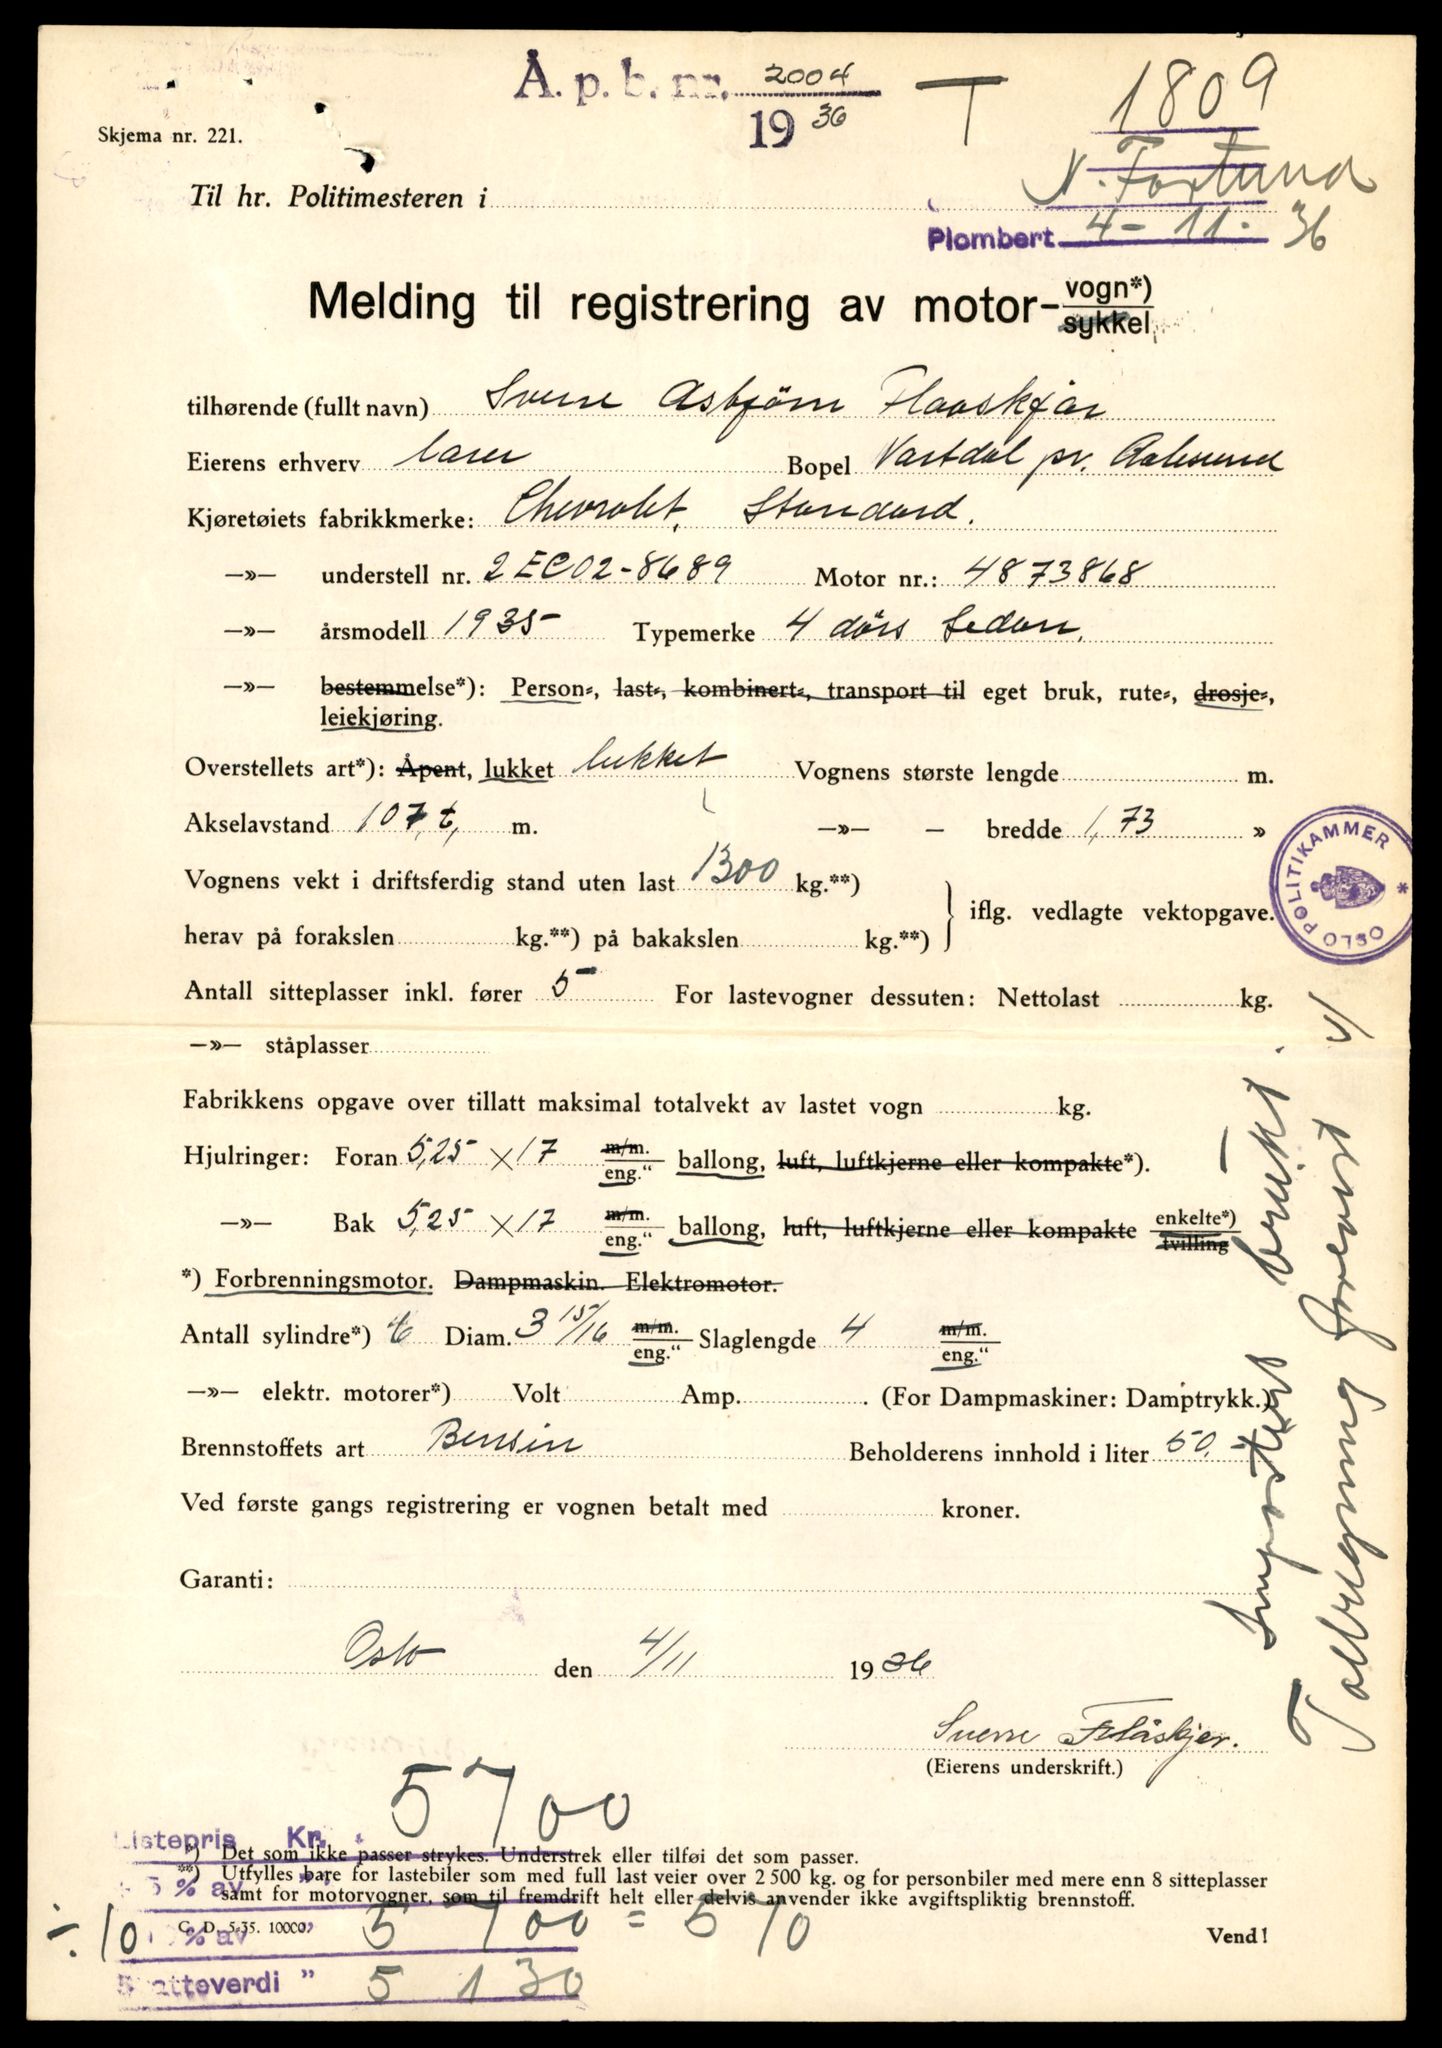 Å. p. b. nr. 2004
19 36
T
1809
Skjema nr. 221.
Til hr. Politimesteren i
Plombert 4-11-36
Melding til registrering av motor- vogn*)
sykkel
tilhørende (fullt navn) Sverre Asbjørn Flaaskjær
Eierens erhverv Bopel Vartdal pr. Aalesund
Kjøretøiets fabrikkmerke: Chevrolet, Standard.
—»— understell nr. 2 EC02-8689 Motor nr.: 4873868
—»— årsmodell 1935 Typemerke 4 dørs Sedan.
—»— bestemmelse*): Person-, last-, kombinert-, transport til eget bruk, rute-, drosje-,
leiekjøring.
Overstellets art*): Åpent, lukket lukket Vognens største lengde m.
Akselavstand 107 t, m. —»— — bredde 1,73 »
Vognens vekt i driftsferdig stand uten last 1300 kg.**)
iflg. vedlagte vektopgave.
herav på forakslen kg.**) på bakakslen kg.**)
OSLO POLITIKAMMER *
Antall sitteplasser inkl. fører 5 For lastevogner dessuten: Nettolast kg.
—»— ståplasser
Fabrikkens opgave over tillatt maksimal totalvekt av lastet vogn kg.
Hjulringer: Foran 5,25 × 17 m/m. eng." ballong, luft, luftkjerne eller kompakte*).
—»— Bak 5,25 × 17 m/m. eng." ballong, luft, luftkjerne eller kompakte enkelte*) tvilling
*) Forbrenningsmotor. Dampmaskin. Elektromotor.
Antall sylindre*) 6 Diam. 3 15/16 m/m. eng." Slaglengde 4 m/m. eng."
—»— elektr. motorer*) Volt Amp. . (For Dampmaskiner: Damptrykk.)
Brennstoffets art Bensin Beholderens innhold i liter 50.
Ved første gangs registrering er vognen betalt med kroner.
Garanti:
Oslo den 4/11 1936
Sverre Flåskjer.
(Eierens underskrift.)
Importert brukt.
Tollregning forevist
5700
Listepris Kr.
*) Det som ikke passer strykes. Understrek eller tilføi det som passer.
**) Utfylles bare for lastebiler som med full last veier over 2 500 kg. og for personbiler med mere enn 8 sitteplasser
samt for motorvogner, som til fremdrift helt eller delvis anvender ikke avgiftspliktig brennstoff.
5 % av "
÷ 10 % av 5 700 = 570
G. D. 5-35. 10000.
Vend!
Skatteverdi " 5 130